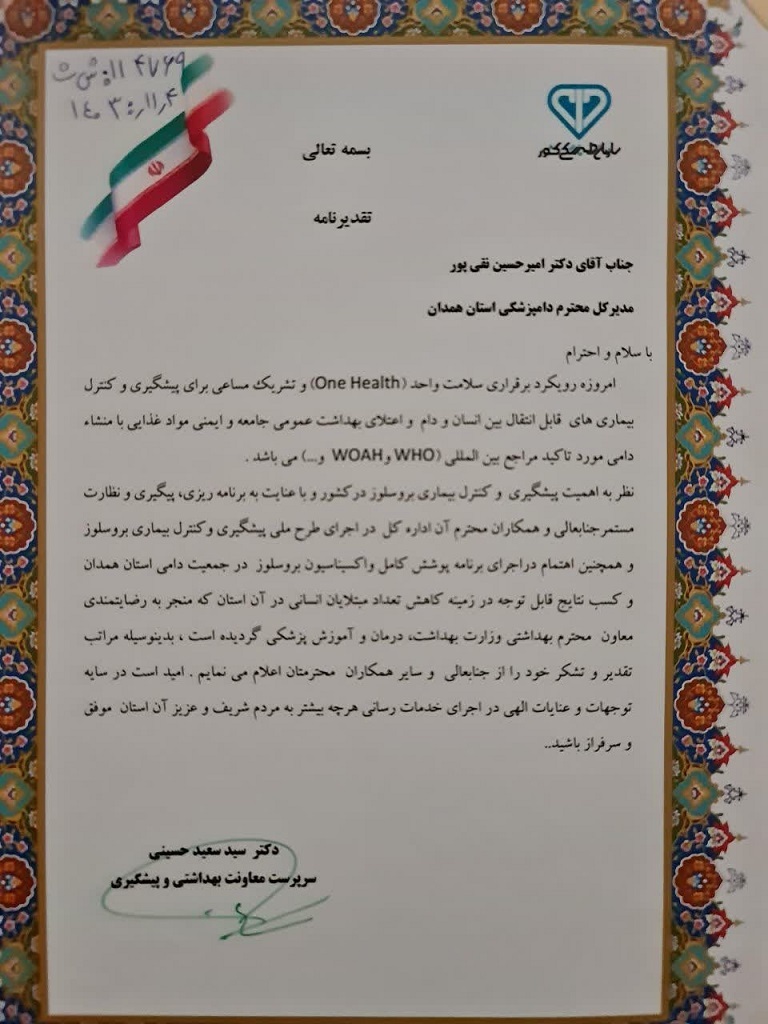 ۱۱۴۷۶۹
۱۴۰۳،۱۱،۴
سازمان دامپزشکی کشور
بسمه تعالی
تقدیرنامه
جناب آقای دکتر امیرحسین نقی پور
مدیرکل محترم دامپزشکی استان همدان
با سلام و احترام
امروزه رویکرد برقراری سلامت واحد (One Health) و تشریک مساعی برای پیشگیری و کنترل
بیماری های قابل انتقال بین انسان و دام و اعتلای بهداشت عمومی جامعه و ایمنی مواد غذایی با منشاء
دامی مورد تاکید مراجع بین المللی (WHO و WOAH و...) می باشد .
نظر به اهمیت پیشگیری و کنترل بیماری بروسلوز درکشور و با عنایت به برنامه ریزی، پیگیری و نظارت
مستمرجنابعالی و همکاران محترم آن اداره کل در اجرای طرح ملی پیشگیری وکنترل بیماری بروسلوز
و همچنین اهتمام دراجرای برنامه پوشش کامل واکسیناسیون بروسلوز در جمعیت دامی استان همدان
و کسب نتایج قابل توجه در زمینه کاهش تعداد مبتلایان انسانی در آن استان که منجر به رضایتمندی
معاون محترم بهداشتی وزارت بهداشت، درمان و آموزش پزشکی گردیده است ، بدینوسیله مراتب
تقدیر و تشکر خود را از جنابعالی و سایر همکاران محترمتان اعلام می نمایم . امید است در سایه
توجهات و عنایات الهی در اجرای خدمات رسانی هرچه بیشتر به مردم شریف و عزیز آن استان موفق
و سرفراز باشید..
دکتر سید سعید حسینی
سرپرست معاونت بهداشتی و پیشگیری